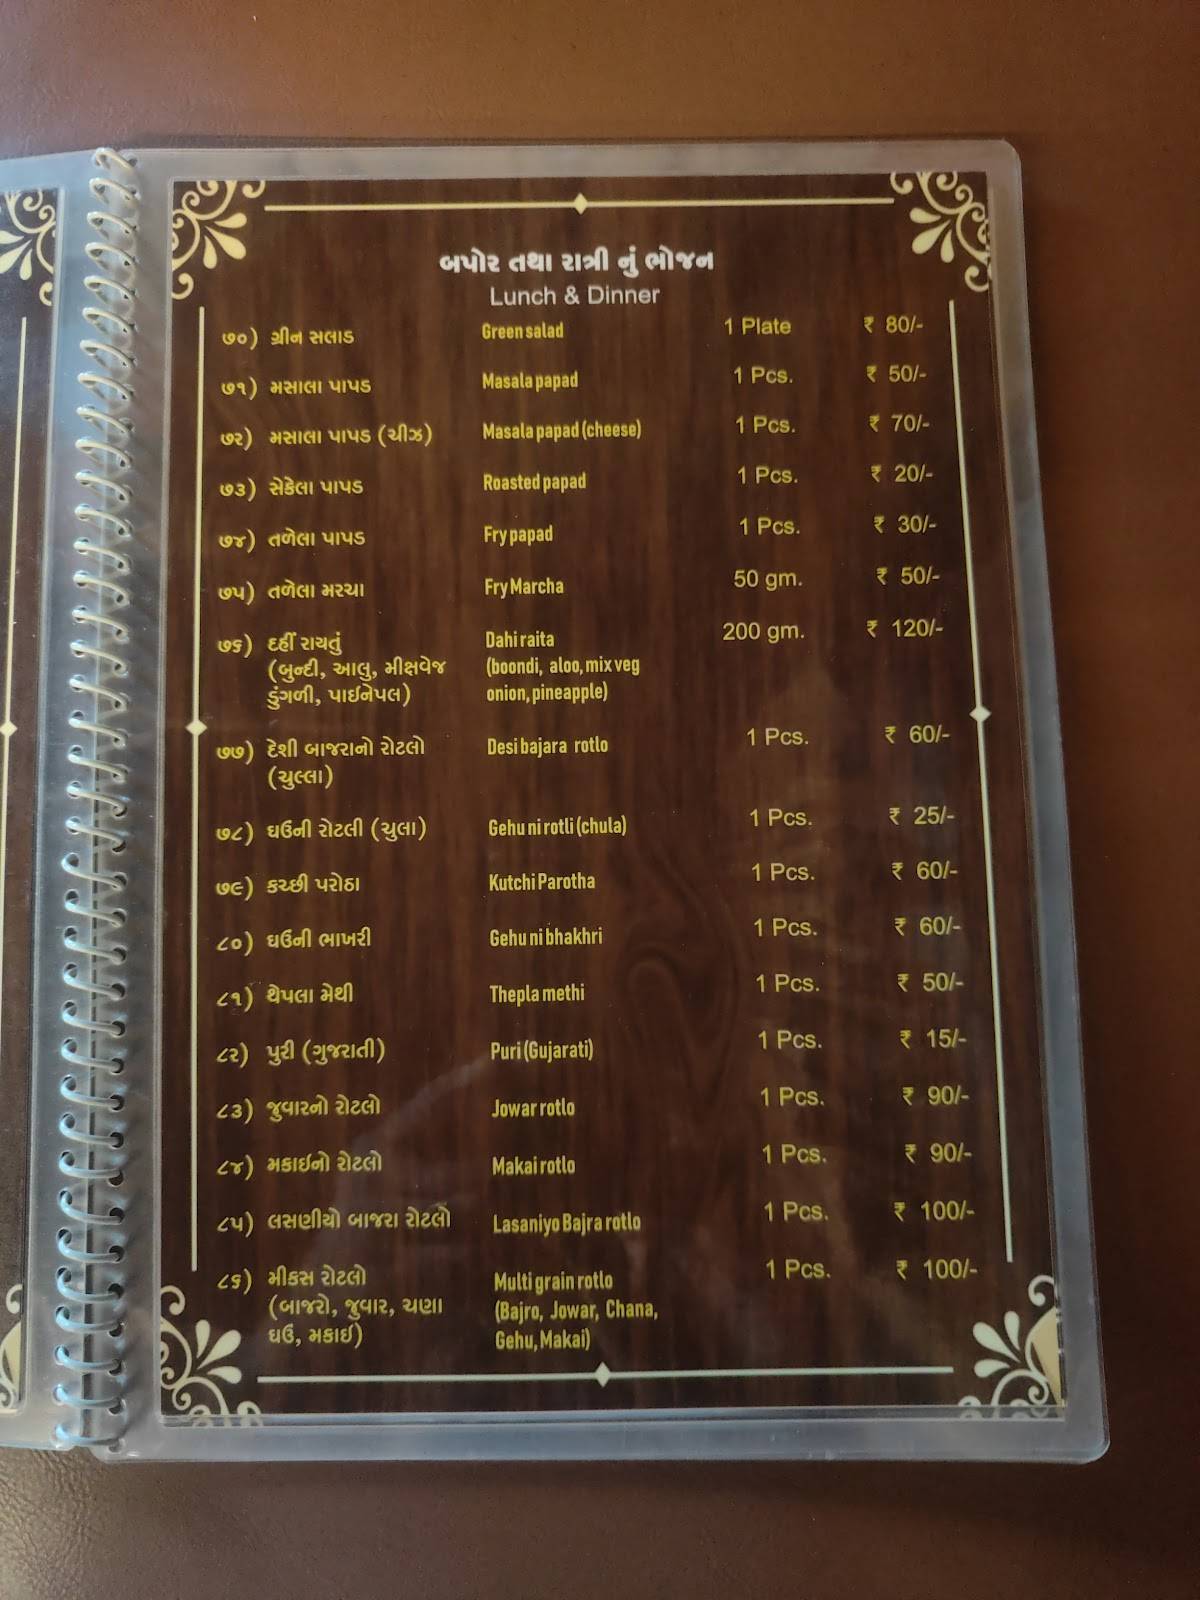 બપોર તથા રાત્રી નું ભોજન
Lunch & Dinner
૭૦) ગ્રીન સલાડ Green salad 1 Plate ₹ 80/-
૭૧) મસાલા પાપડ Masala papad 1 Pcs. ₹ 50/-
૭૨) મસાલા પાપડ (ચીઝ) Masala papad (cheese) 1 Pcs. ₹ 70/-
૭૩) સેકેલા પાપડ Roasted papad 1 Pcs. ₹ 20/-
૭૪) તળેલા પાપડ Fry papad 1 Pcs. ₹ 30/-
૭૫) તળેલા મરચા Fry Marcha 50 gm. ₹ 50/-
૭૬) દહીં રાયતું Dahi raita 200 gm. ₹ 120/-
(બુન્દી, આલુ, મીક્ષવેજ (boondi, aloo, mix veg
ડુંગળી, પાઈનેપલ) onion, pineapple)
૭૭) દેશી બાજરાનો રોટલો Desi bajara rotlo 1 Pcs. ₹ 60/-
(ચુલ્લા)
૭૮) ઘઉની રોટલી (ચુલા) Gehu ni rotli (chula) 1 Pcs. ₹ 25/-
૭૯) કચ્છી પરોઠા Kutchi Parotha 1 Pcs. ₹ 60/-
૮૦) ઘઉની ભાખરી Gehu ni bhakhri 1 Pcs. ₹ 60/-
૮૧) થેપલા મેથી Thepla methi 1 Pcs. ₹ 50/-
૮૨) પુરી (ગુજરાતી) Puri (Gujarati) 1 Pcs. ₹ 15/-
૮૩) જુવારનો રોટલો Jowar rotlo 1 Pcs. ₹ 90/-
૮૪) મકાઈનો રોટલો Makai rotlo 1 Pcs. ₹ 90/-
૮૫) લસણીયો બાજરા રોટલો Lasaniyo Bajra rotlo 1 Pcs. ₹ 100/-
૮૬) મીકસ રોટલો Multi grain rotlo 1 Pcs. ₹ 100/-
(બાજરો, જુવાર, ચણા (Bajro, Jowar, Chana,
ઘઉ, મકાઈ) Gehu, Makai)